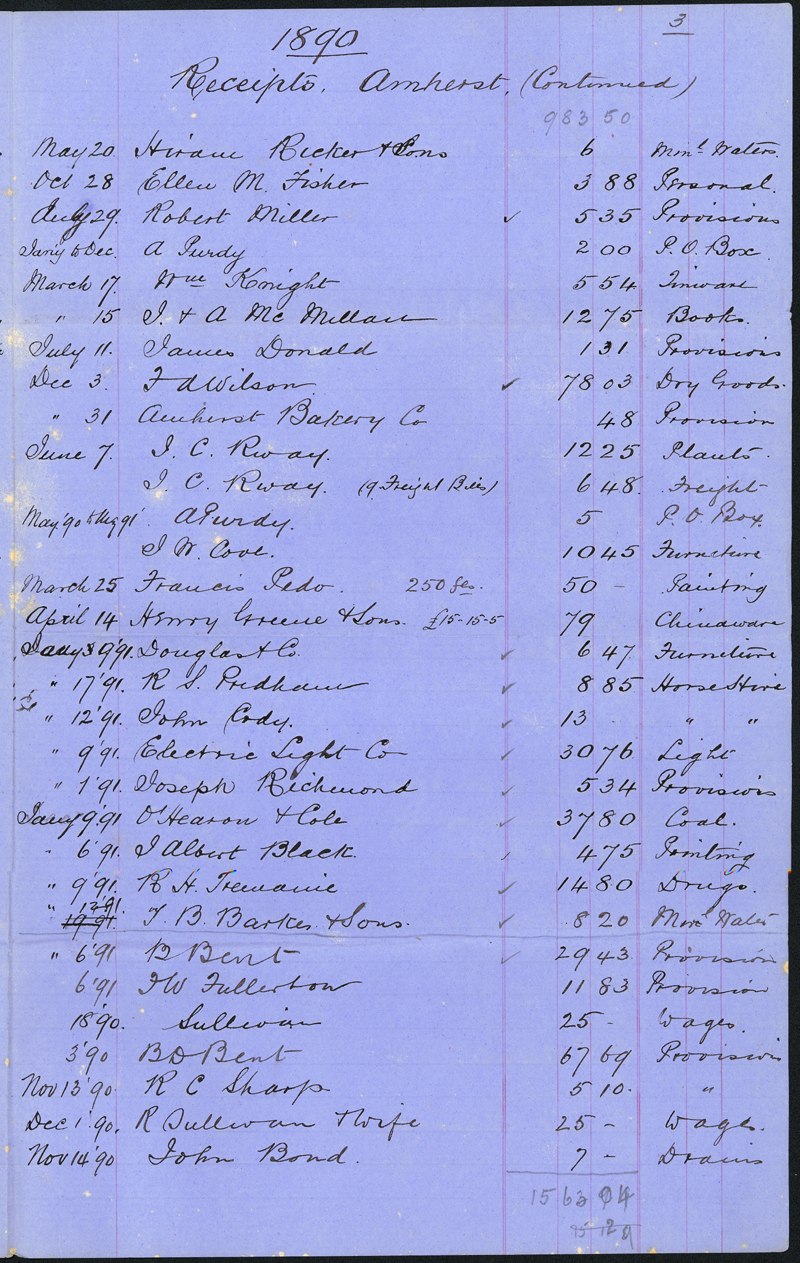 3
1890
Receipts. Amherst. (Continued)
983 50
May 20 Hiram Ricker & Sons 6 Minl Waters.
Oct 28 Ellen M. Fisher 3 88 Personal.
July 29. Robert Miller ✓ 5 35 Provisions
Jan'y to Dec. A Purdy 2 00 P. O. Box
March 17. Wm Knight 5 54 Tinware
" 15 J. & A Mc Millan 12 75 Books.
July 11. James Donald 1 31 Provisions
Dec 3. F A Wilson ✓ 78 03 Dry Goods.
" 31 Amherst Bakery Co 48 Provision
June 7. I. C. Rway. 12 25 Plants.
I. C. Rway. (9 Freight Bills) 6 48 Freight
May '90 to 91 A Purdy. 5 P. O Box.
J W. Cove. 10 45 Furniture
March 25 Francis Pedo. 250 50 - Painting
April 14 Henry Greene & Sons. £15-15-5 79 Chinaware
Jany 9'91. Douglas & Co. ✓ 6 47 Furniture
" 17'91. R S. Pridham ✓ 8 85 Horse Hire
" 12'91. John Cody. ✓ 13 " "
" 9'91. Electric Light Co ✓ 30 76 Light
" 1'91. Joseph Richmond ✓ 5 34 Provisions
Jany 9'91 O'Hearon & Cole ✓ 37 80 Coal.
" 6'91. J Albert Black. ✓ 4 75 Printing
" 9'91. R. H. Tremaine ✓ 14 80 Drugs.
" 12'91.
19'91. T. B. Barker & Sons. ✓ 8 20 Minl Water
" 6'91 B Bent ✓ 29 43 Provision
6'91 J W Fullerton 11 83 Provision
18'90. Sullivan 25 - Wages.
3'90 B D Bent 67 69 Provisions
Nov 13'90. R C Sharp 5 10. "
Dec 1'90. R Sullivan & Wife 25 - Wages.
Nov 14'90 John Bond. 7 - Drains
1563 04